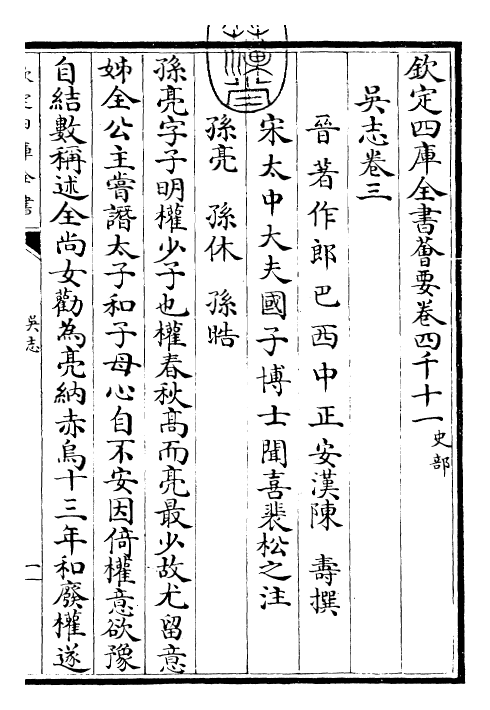 欽定四庫全書薈要卷四千十一 史部
吳志卷三
晉著作郎巴西中正安漢陳 壽撰
宋太中大夫國子博士聞喜裴松之注
孫亮 孫休 孫晧
孫亮字子明權少子也權春秋髙而亮最少故尤留意
姊全公主嘗譖太子和子母心自不安因倚權意欲豫
自結數稱述全尚女勸為亮納赤烏十三年和廢權遂
欽定四庫全書
吳志
一